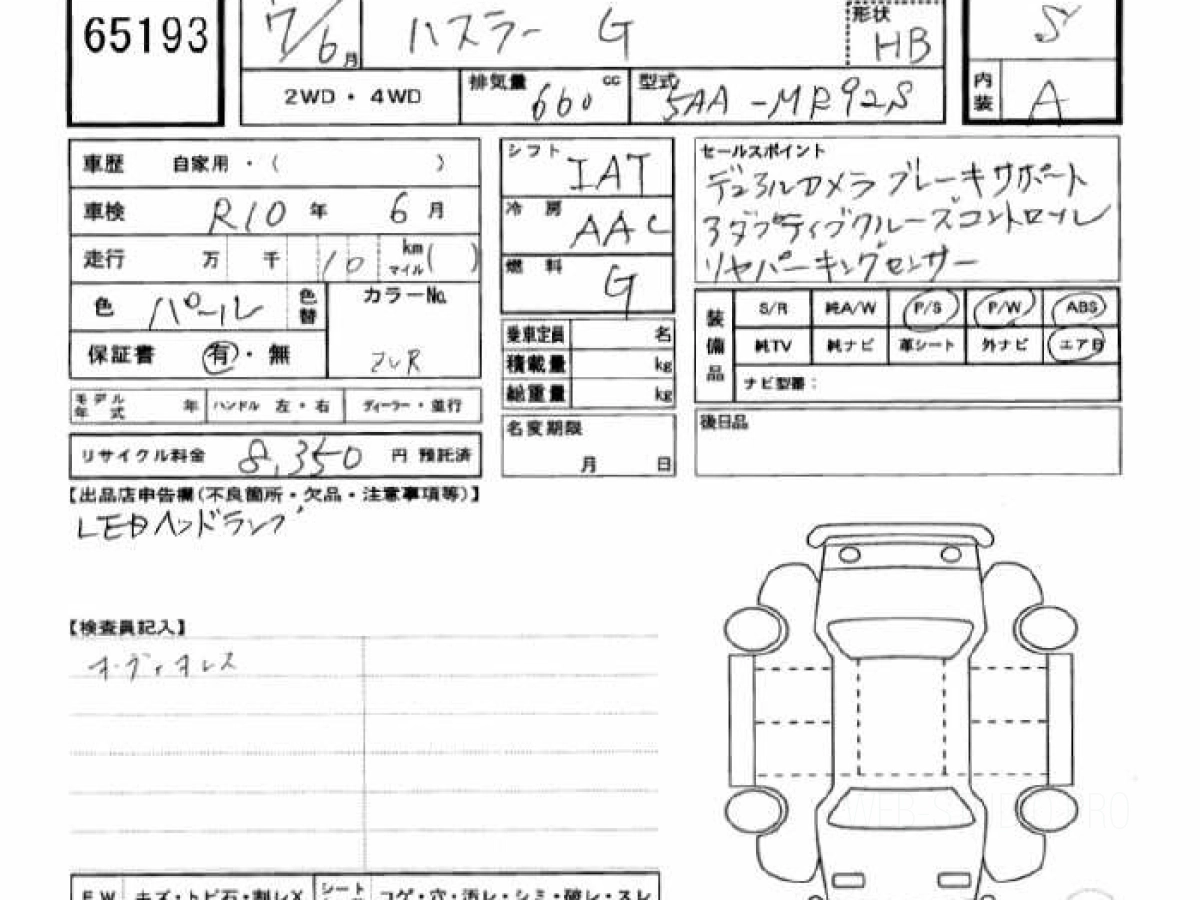 65193
7/6月 ハスラー G 形状 HB
2WD・4WD 排気量 660 cc 型式 5AA-MR92S
S
内装 A
車歴 自家用・( )
車検 R10年 6月
走行 万 千 10 km マイル ( )
色 パール 色替 カラーNo. ZVR
保証書 有・無
モデル年式 年 ハンドル 左・右 ディーラー・並行
リサイクル料金 8,350 円 預託済
シフト IAT
冷房 AAC
燃料 G
乗車定員 名
積載量 kg
総重量 kg
名変期限
月 日
セールスポイント
デュアルカメラブレーキサポート
アダプティブクルーズコントロール
リヤパーキングセンサー
装備品
S/R 純A/W P/S P/W ABS
純TV 純ナビ 革シート 外ナビ エアB
ナビ型番:
後日品
【出品店申告欄(不良箇所・欠品・注意事項等)】
LEDヘッドランプ
【検査員記入】
オーディオレス
FW キズ・トビ石・割レX シート コゲ・穴・汚レ・シミ・破レ・スレ